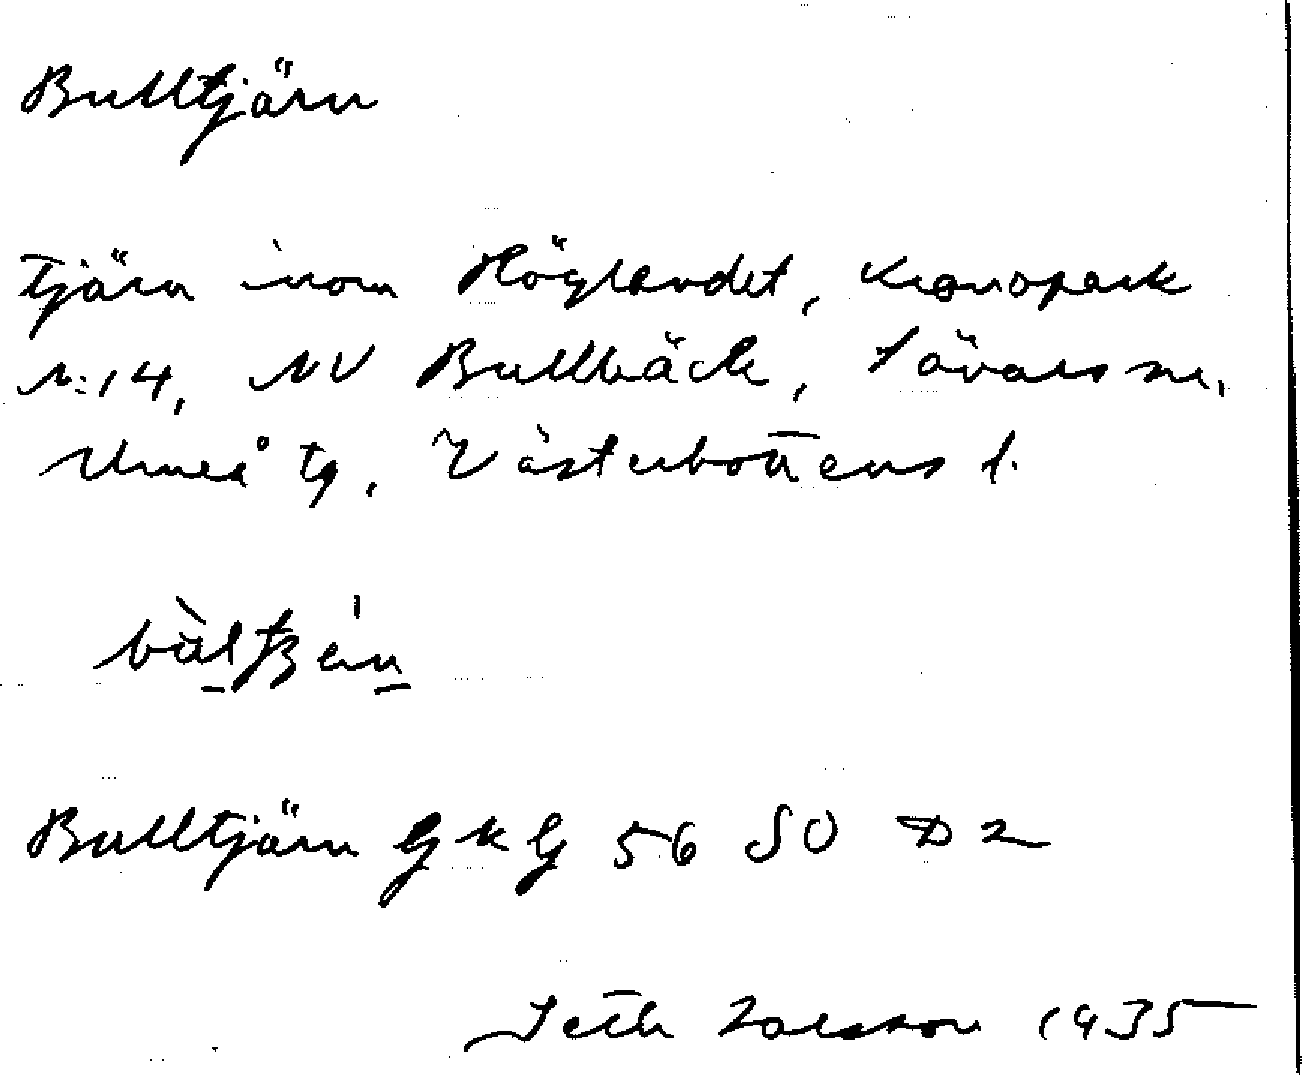 Bulltjärn
Tjärn inom Höglandet, kronopark
n:14, NV Bullbäck, Sävars sn,
Umeå tg, Västerbottens l.
Bulltjärn GKG 56 SO D2
Seth Larsson 1935